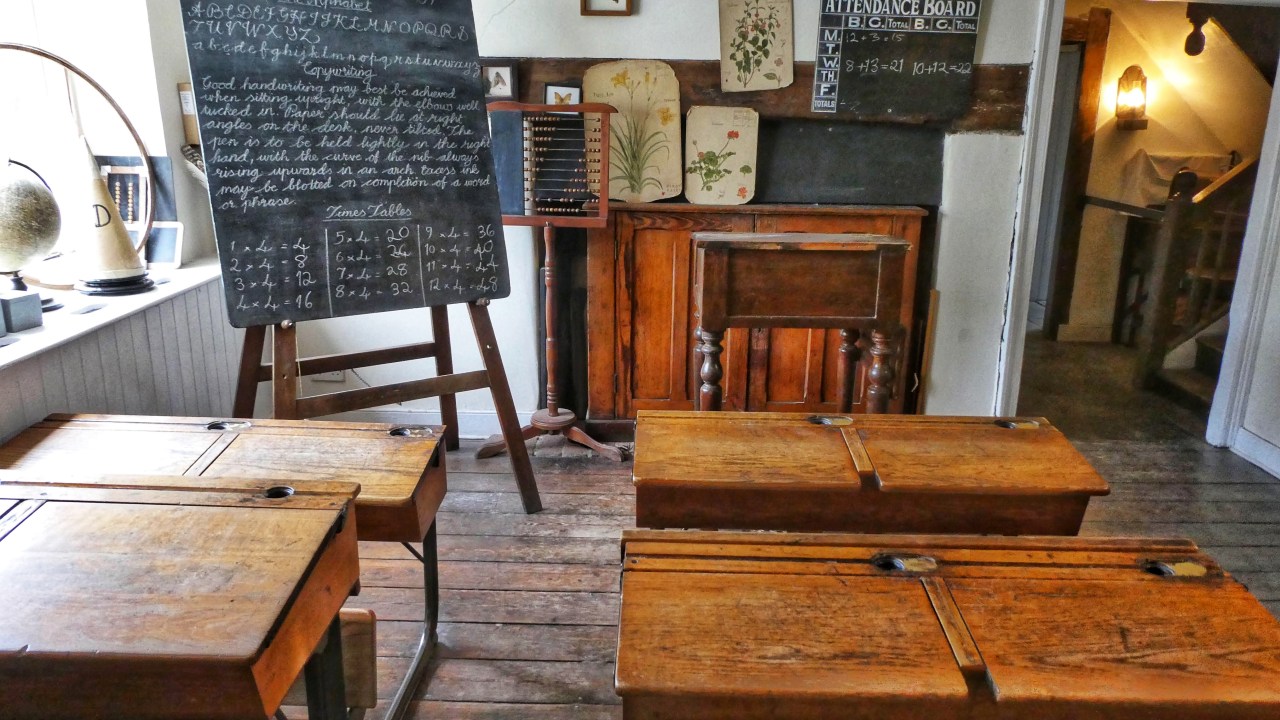 Alphabet
A B C D E F G H I J K L M N O P Q R S
T U V W X Y Z
a b c d e f g h i j k l m n o p q r s t u v w x y z
Copywriting
Good handwriting may best be achieved
when sitting upright, with the elbows well
tucked in. Paper should lie at right
angles on the desk, never tilted. The
pen is to be held lightly in the right
hand, with the curve of the nib always
rising upwards in an arch. Excess ink
may be blotted on completion of a word
or phrase.
Times Tables
1 × 4 = 4
2 × 4 = 8
3 × 4 = 12
4 × 4 = 16
5 × 4 = 20
6 × 4 = 24
7 × 4 = 28
8 × 4 = 32
9 × 4 = 36
10 × 4 = 40
11 × 4 = 44
12 × 4 = 48
D
ATTENDANCE BOARD
B. G. TOTAL B. G. TOTAL
M. 12 + 3 = 15
T.
W. 8 + 13 = 21 10 + 12 = 22
TH.
F.
TOTALS